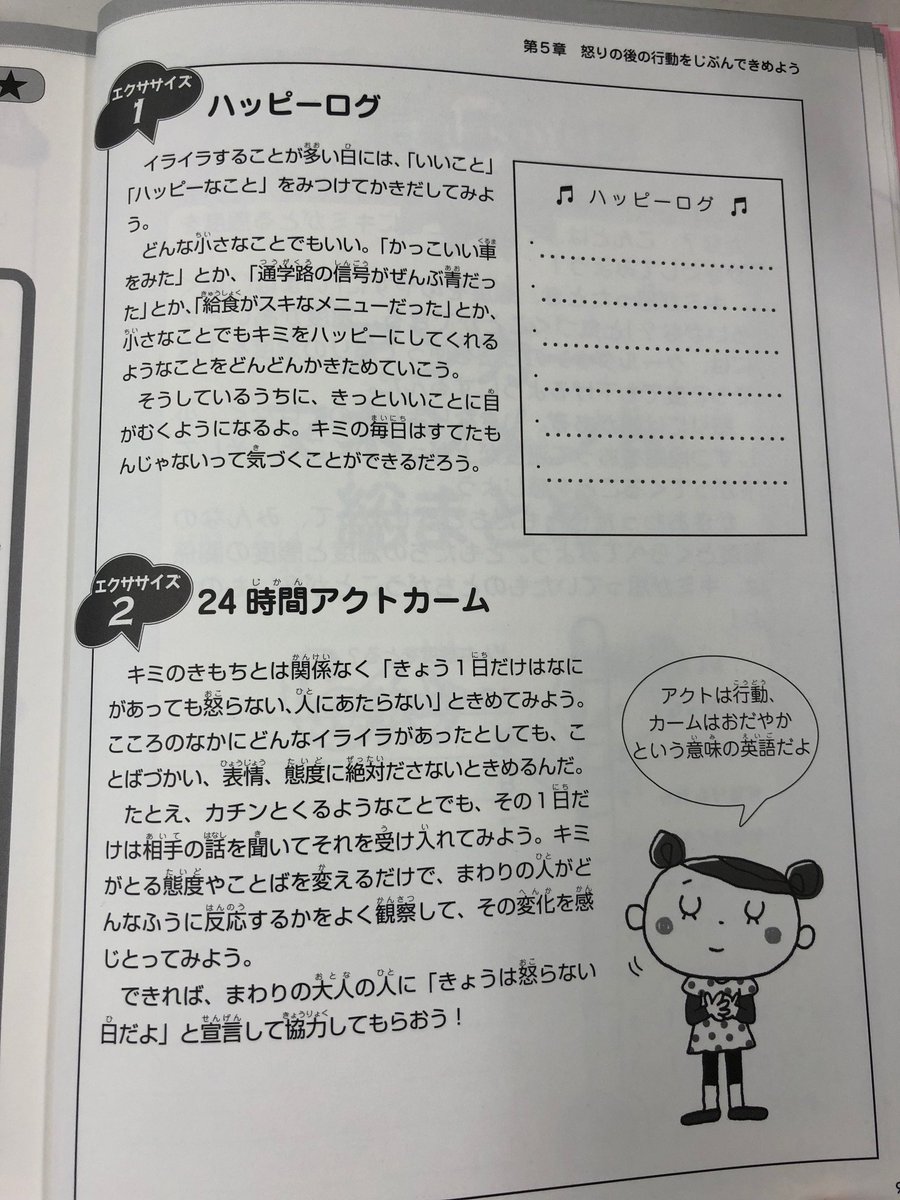 第5章 怒りの後の行動をじぶんできめよう
エクササイズ
1
ハッピーログ
イライラすることが多い日には、「いいこと」
「ハッピーなこと」をみつけてかきだしてみよ
う。
どんな小さなことでもいい。「かっこいい車
をみた」とか、「通学路の信号がぜんぶ青だっ
た」とか、「給食がスキなメニューだった」とか、
小さなことでもキミをハッピーにしてくれる
ようなことをどんどんかきためていこう。
そうしているうちに、きっといいことに目
がむくようになるよ。キミの毎日はすてたも
んじゃないって気づくことができるだろう。
♫ ハッピーログ ♫
エクササイズ
2
24時間アクトカーム
キミのきもちとは関係なく「きょう1日だけはなに
があっても怒らない、人にあたらない」ときめてみよう。
こころのなかにどんなイライラがあったとしても、こ
とばづかい、表情、態度に絶対ださないときめるんだ。
たとえ、カチンとくるようなことでも、その1日だ
けは相手の話を聞いてそれを受け入れてみよう。キミ
がとる態度やことばを変えるだけで、まわりの人がど
んなふうに反応するかをよく観察して、その変化を感
じとってみよう。
できれば、まわりの大人の人に「きょうは怒らない
日だよ」と宣言して協力してもらおう!
アクトは行動、
カームはおだやか
という意味の英語だよ